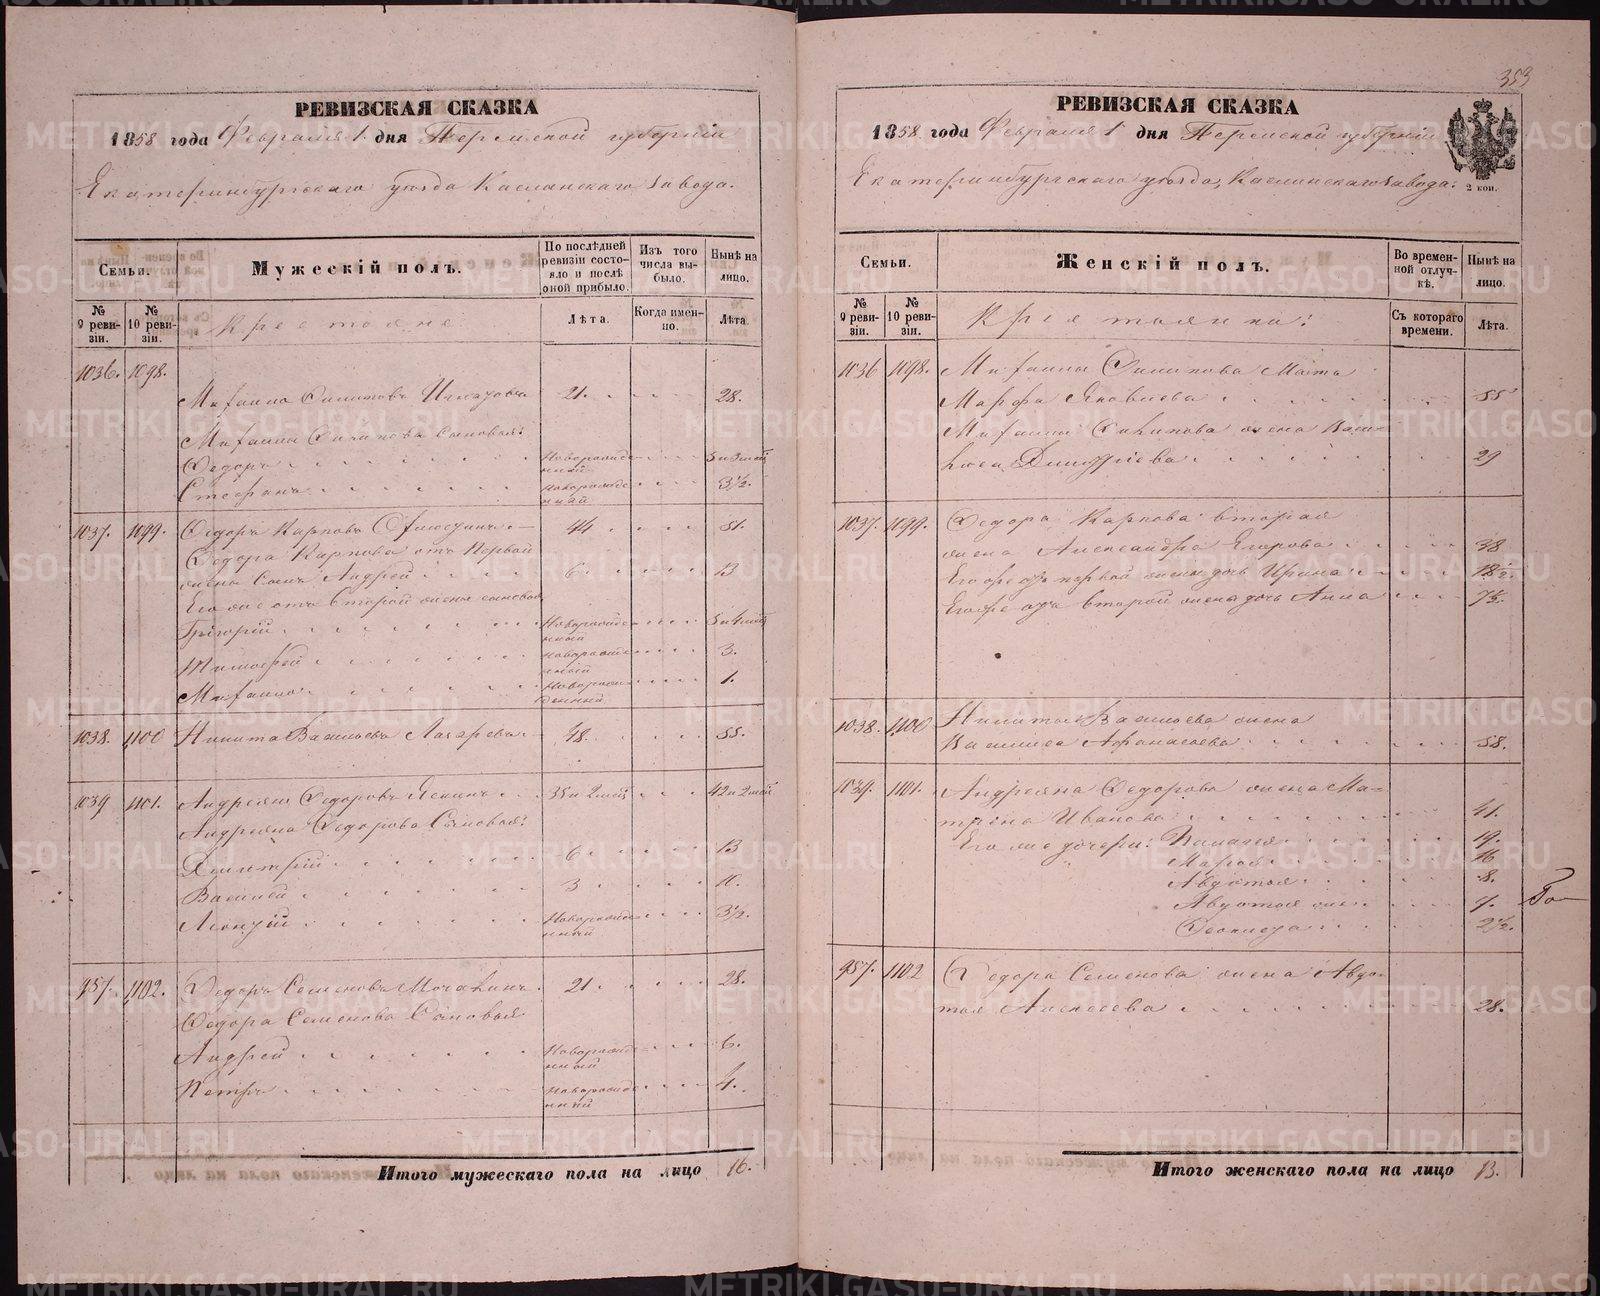 РЕВИЗСКАЯ СКАЗКА
1858 года Февраля 1 дня Пермской губернiи
Екатеринбургскаго уѣзда Каслинскаго завода.
Семьи.
Мужескiй полъ.
По послѣдней ревизiи состояло и послѣ оной прибыло.
Изъ того числа выбыло.
Нынѣ на лицо.
№ 9 ревизiи.
№ 10 ревизiи.
Крестьяне
Лѣта.
Когда именно.
Лѣта.
1036. 1098.
Михаилъ 21. 28.
Михаила сыновья:
Федоръ Новорожденный 5 и 3 мѣс
Стефанъ Новорожденный 3½.
1037. 1099. Федоръ Карповъ 44 51.
Федора Карпова отъ первой
жены сынъ Андрей 6. 13
Его же отъ второй жены сыновья
Григорiй Новорожденный 5 и 4 мѣс
Тимофей Новорожденный 3.
Михаилъ Новорожденный 1.
1038. 1100 Никита Васильевъ Лазаревъ 48. 55.
1039 1101. Андреянъ Федоровъ 35 и 2 мѣс 42 и 2 мѣс
Андреяна Федорова сыновья:
Дмитрiй 6. 13
Василiй 3 10.
Леонтiй Новорожденный 3½.
957. 1102. Федоръ Семеновъ Мочалинъ 21. 28.
Федора Семенова сыновья
Андрей Новорожденный 6.
Петръ Новорожденный 4.
Итого мужескаго пола на лицо 16.
353
РЕВИЗСКАЯ СКАЗКА
1858 года Февраля 1 дня Пермской губернiи
Екатеринбургскаго уѣзда, Каслинскаго завода.
2 коп.
Семьи.
Женскiй полъ.
Во временной отлучкѣ.
Нынѣ на лицо.
№ 9 ревизiи.
№ 10 ревизiи.
Крестьянки:
Съ котораго времени.
Лѣта.
1036 1098. Михаилы мать
Марфа Яковлева 55
Михаилы жена Васи-
лиса Дмитрiева 29
1037. 1099. Федора Карпова вторая
жена Александра Егорова 38
Его же отъ первой жены дочь Ирина 18½.
Его же отъ второй жены дочь Анна 7½.
1038. 1100 Никиты Васильева жена
Василиса Афанасьева 58.
1039. 1101. Андреяна Федорова жена Ма-
трена Иванова 41.
Его же дочери: Палагея 19.
Марья 16
Авдотья 8.
Авдотья же 7.
Феоклиста 2½.
957. 1102 Федора Семенова жена Авдо-
тья Алексеева 28.
Итого женскаго пола на лицо 13.
METRIKI.GASO-URAL.RU